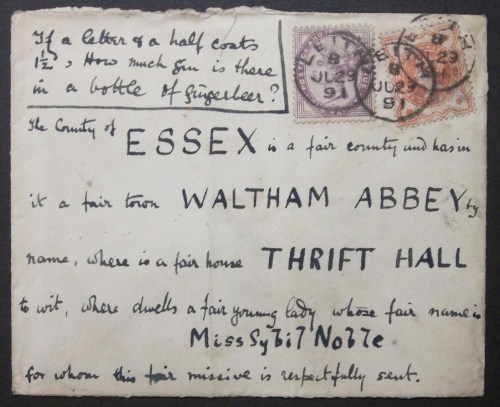 If a letter & a half costs
1½ᵈ, How much gin is there
in a bottle of gingerbeer?
LEITH
8
JU 29
91
LEITH
8
JU 29
91
8
29
The County of ESSEX is a fair county and has in
it a fair town WALTHAM ABBEY by
name, where is a fair house THRIFT HALL
to wit, where dwells a fair young lady whose fair name is
Miss Sybil Noble
for whom this fair missive is respectfully sent.